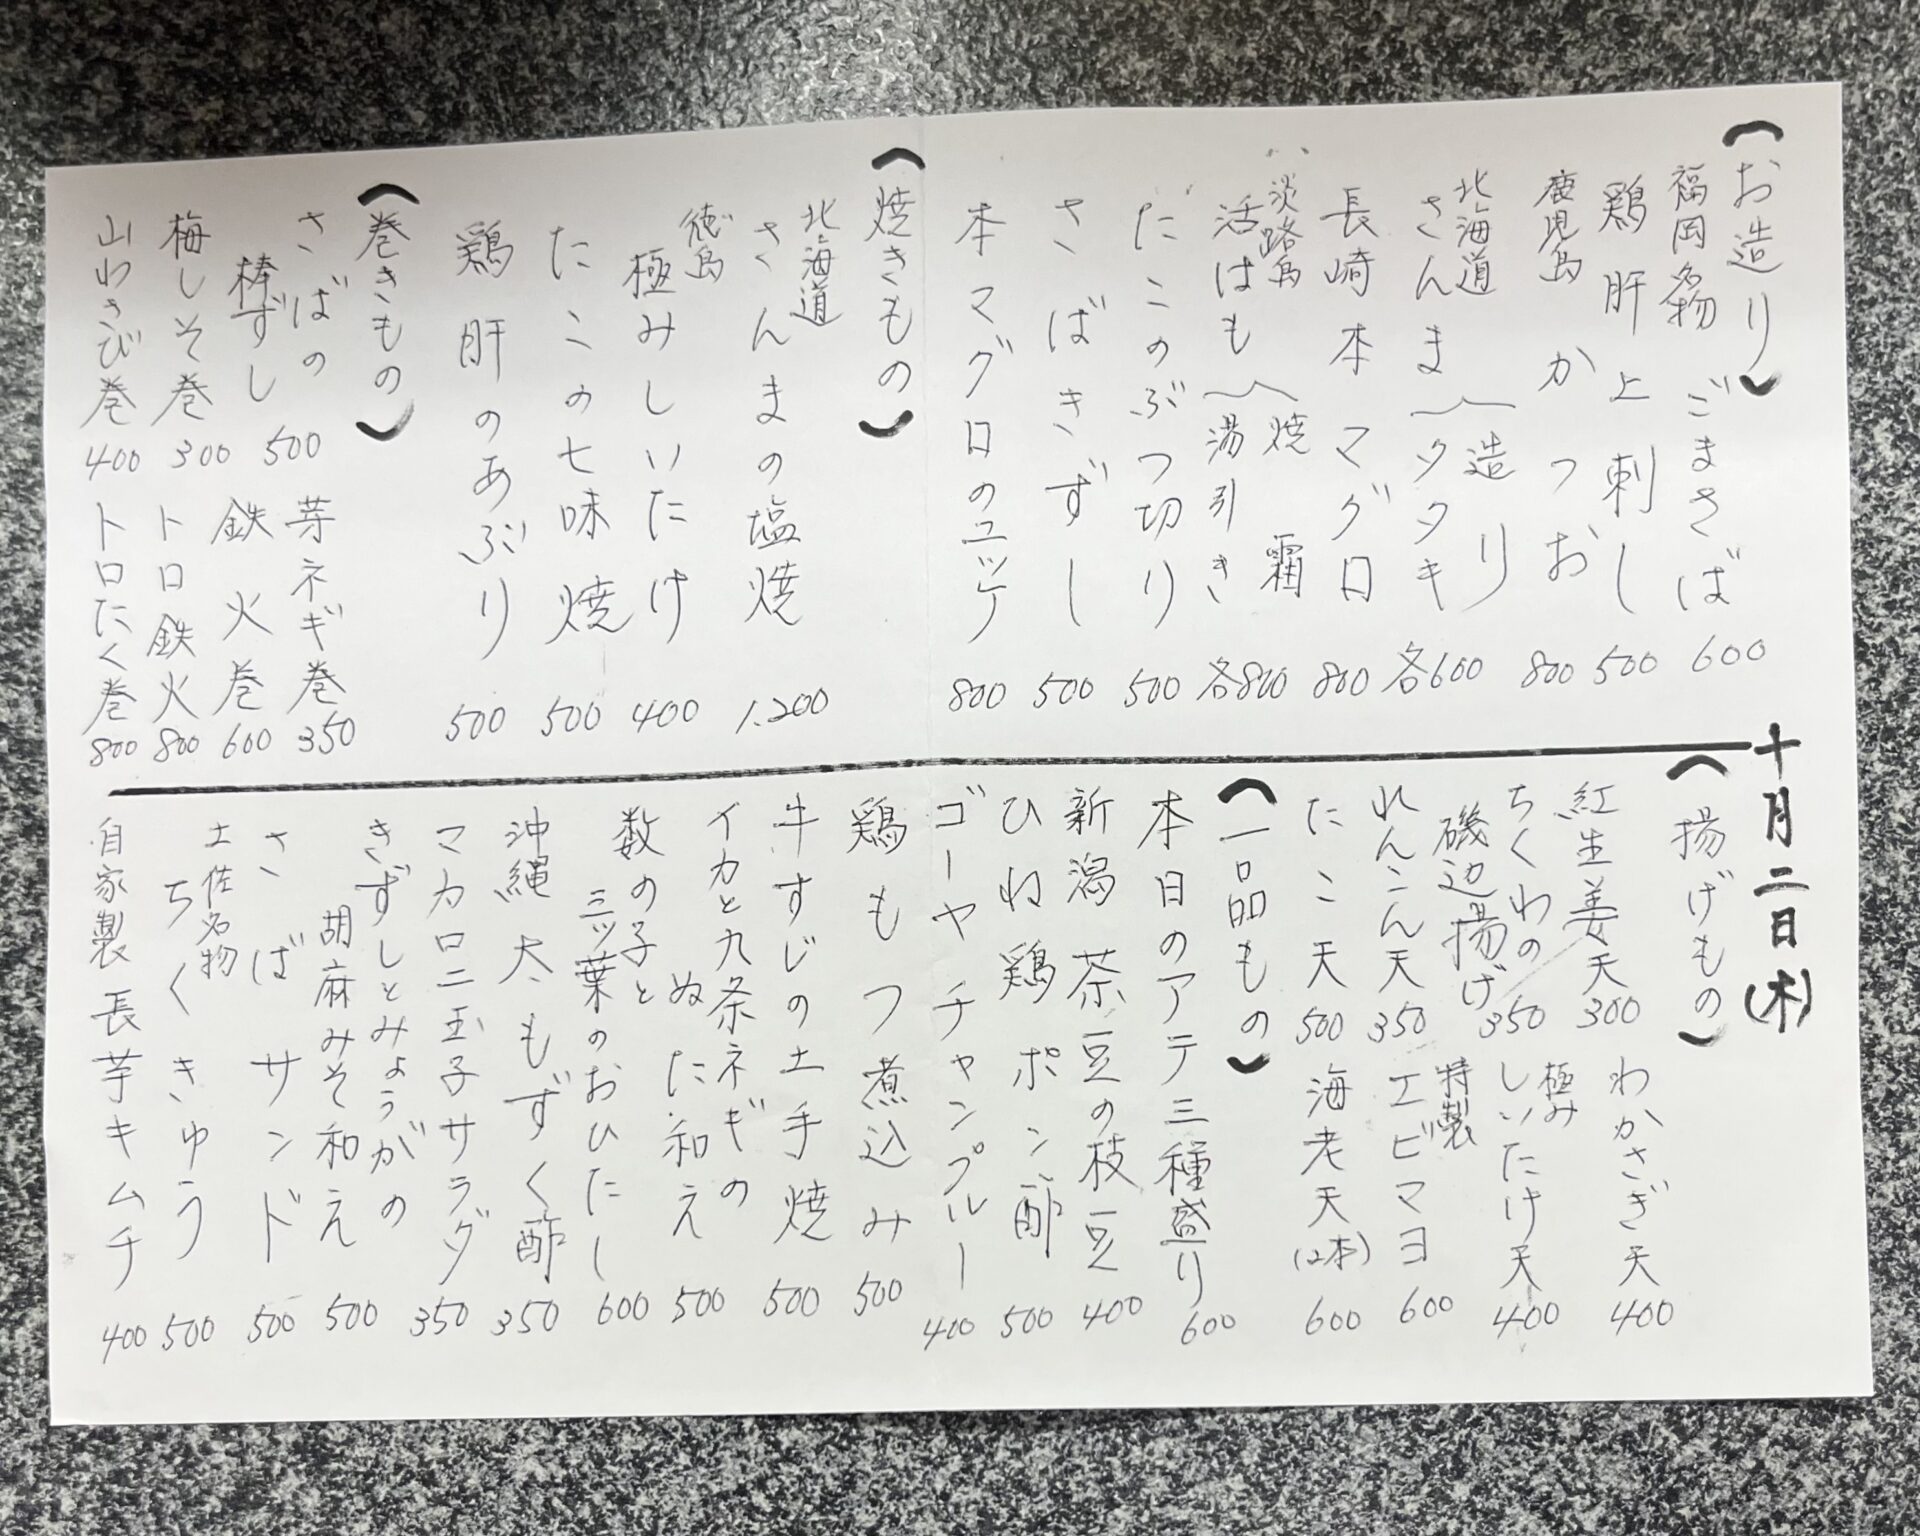 十月二日(木)
(お造り)
福岡名物 ごまさば 600
鶏肝上刺し 500
鹿児島 かつお 800
北海道 さんま{造り タタキ 各600
長崎本マグロ 800
淡路島 活はも{焼霜 湯引き 各800
たこのぶつ切り 500
さばきずし 500
本マグロのユッケ 800
(焼きもの)
北海道 さんまの塩焼 1.200
徳島 極みしいたけ 400
たこの七味焼 500
鶏肝のあぶり 500
(巻きもの)
さばの棒ずし 500
梅しそ巻 300
山わさび巻 400
芽ネギ巻 350
鉄火巻 600
トロ鉄火 800
トロたく巻 800
(揚げもの)
紅生姜天 300
ちくわの磯辺揚げ 350
れんこん天 350
たこ天 500
わかさぎ天 400
極みしいたけ天 400
特製エビマヨ 600
海老天(2本) 600
(一品もの)
本日のアテ三種盛り 600
新潟茶豆の枝豆 400
ひね鶏ポン酢 500
ゴーヤチャンプルー 400
鶏もつ煮込み 500
牛すじの土手焼 500
イカと九条ネギの
ぬた和え 500
数の子と
三ッ葉のおひたし 600
沖縄太もずく酢 350
マカロニ玉子サラダ 350
きずしとみょうがの
胡麻みそ和え 500
さばサンド 500
土佐名物 ちくきゅう 500
自家製長芋キムチ 400